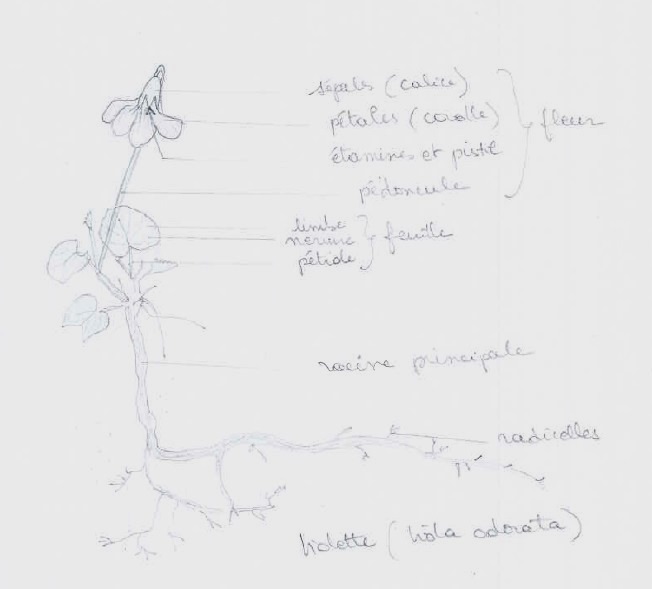 sépales (calice)
pétales (corolle)
fleur
étamines et pistil
pédoncule
limbe
nervure
feuille
pétiole
racine principale
radicelles
Violette (Viola odorata)